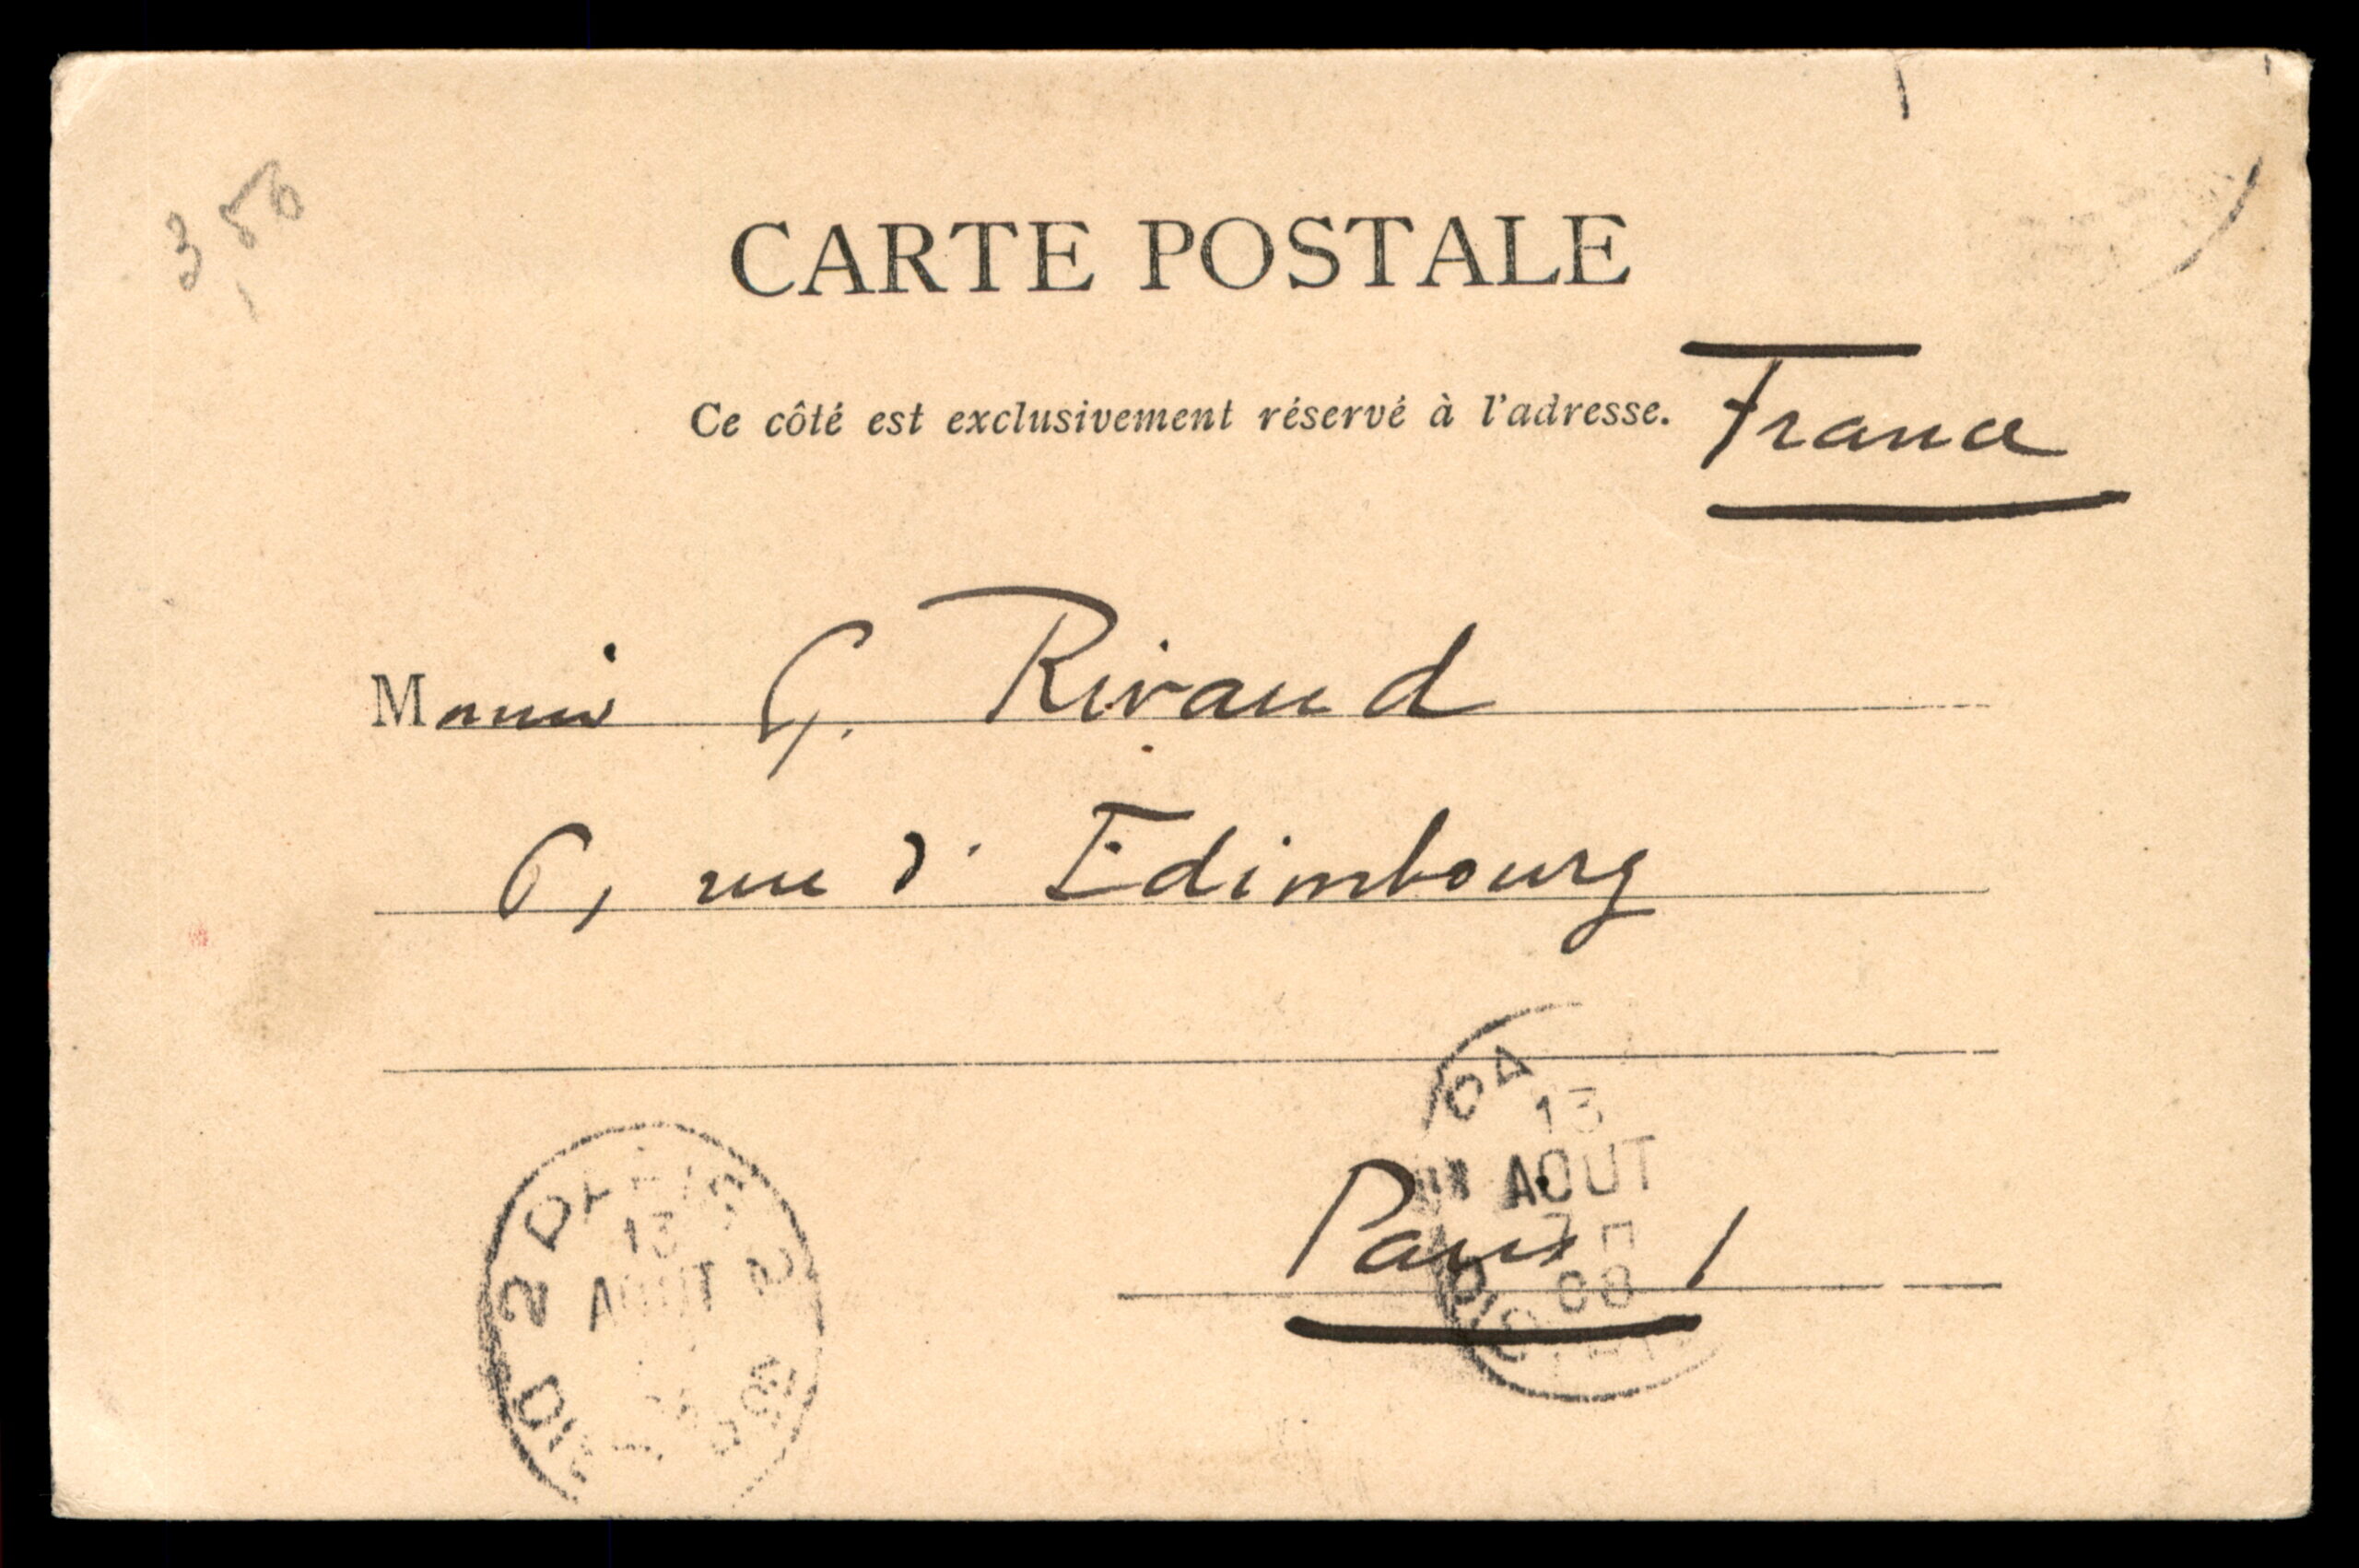 3,50
CARTE POSTALE
Ce côté est exclusivement réservé à l'adresse.
France
Monsieur G. Rivaud
6, rue d'Edimbourg
PA
13
AOUT
08
DISTRIB
Paris
2 PARIS 2
13
AOUT